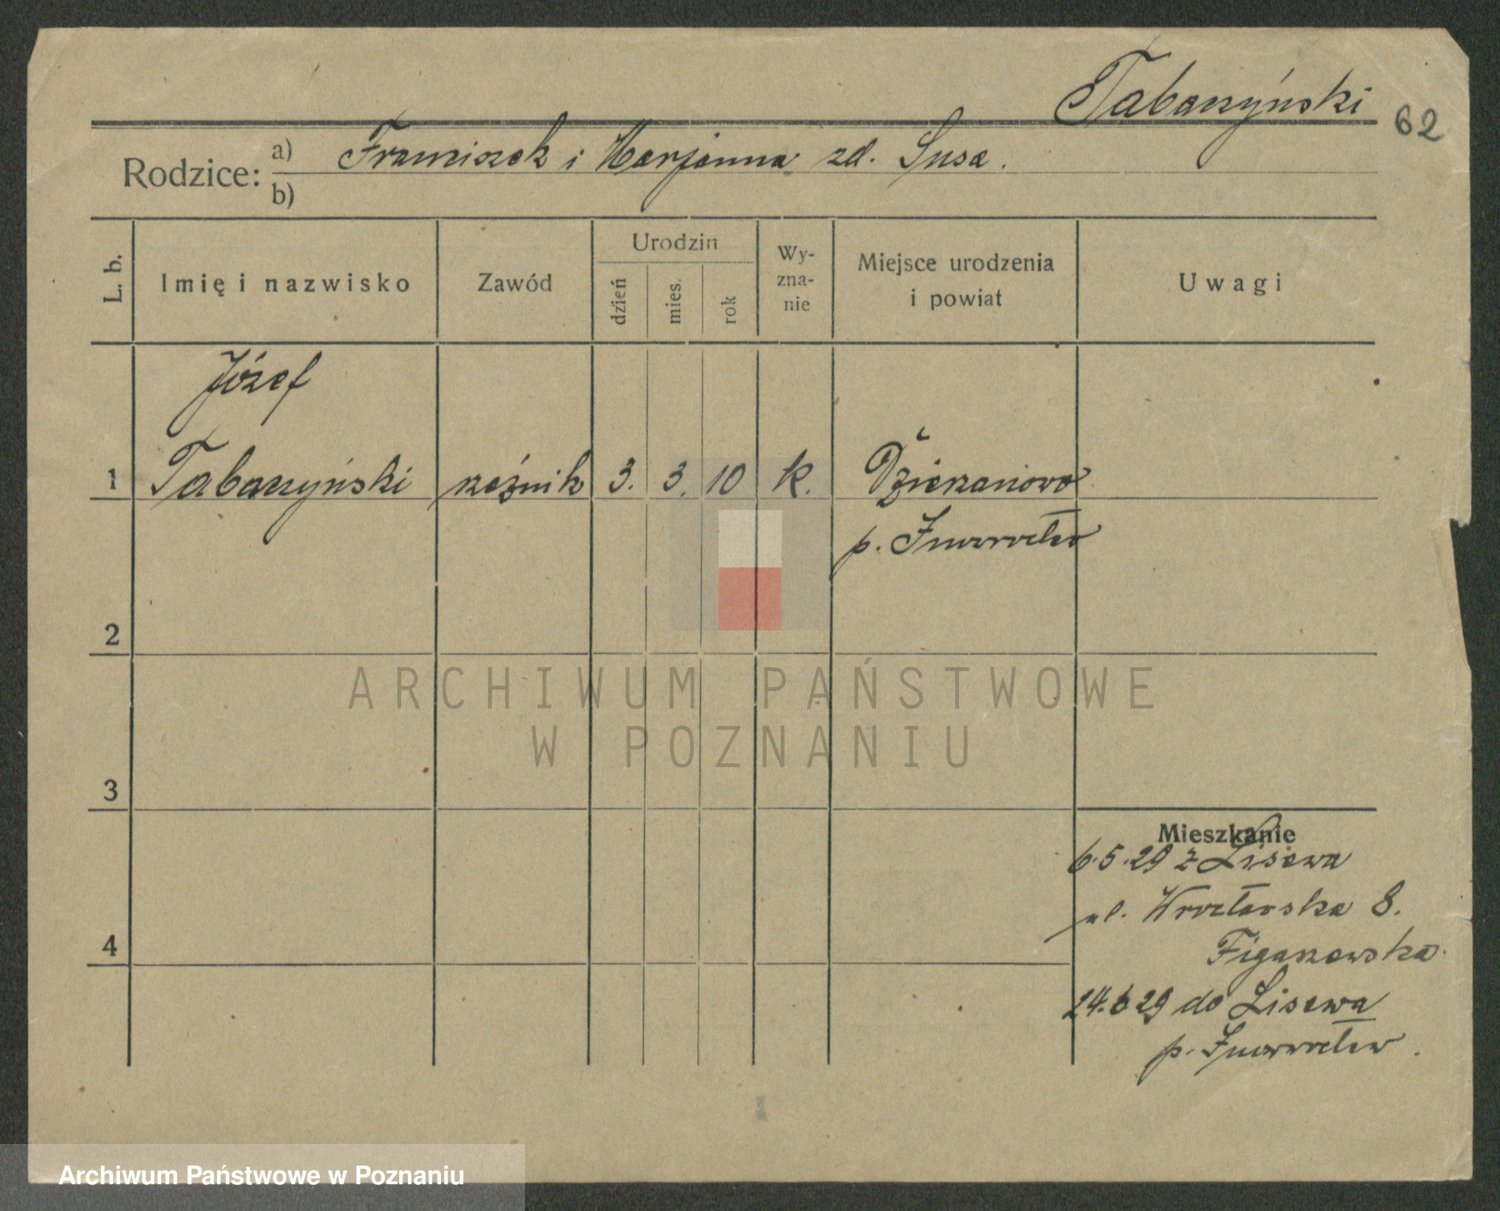 Tabaczyński
62
Rodzice: a) Franciszek i Marjanna zd. Susa.
b)
L. b.
Imię i nazwisko
Zawód
Urodzin
dzień
mies.
rok
Wy-
zna-
nie
Miejsce urodzenia
i powiat
Uwagi
Józef
1 Tabaczyński rzeźnik 3. 3. 10 k.
p. Inowrocław
2
3
4
Mieszkanie
6.5.29 z Lisewa
ul. Wrocławska 8.
24.6 29 do Lisewa
p. Inowrocław.
ARCHIWUM PAŃSTWOWE
W POZNANIU
Archiwum Państwowe w Poznaniu